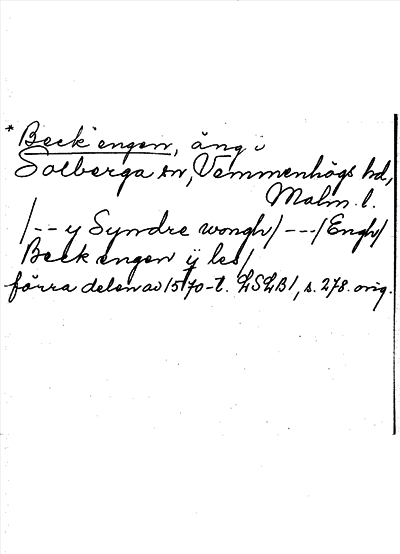 * Beck engen, äng i
Solberga sn, Vemmenhögs hd,
Malm. l.
/-- y Syndre wongh/ ---/Engh/
Beck engen ÿ les/
förra delen av 1570-t. LSLB1, s. 278. orig.